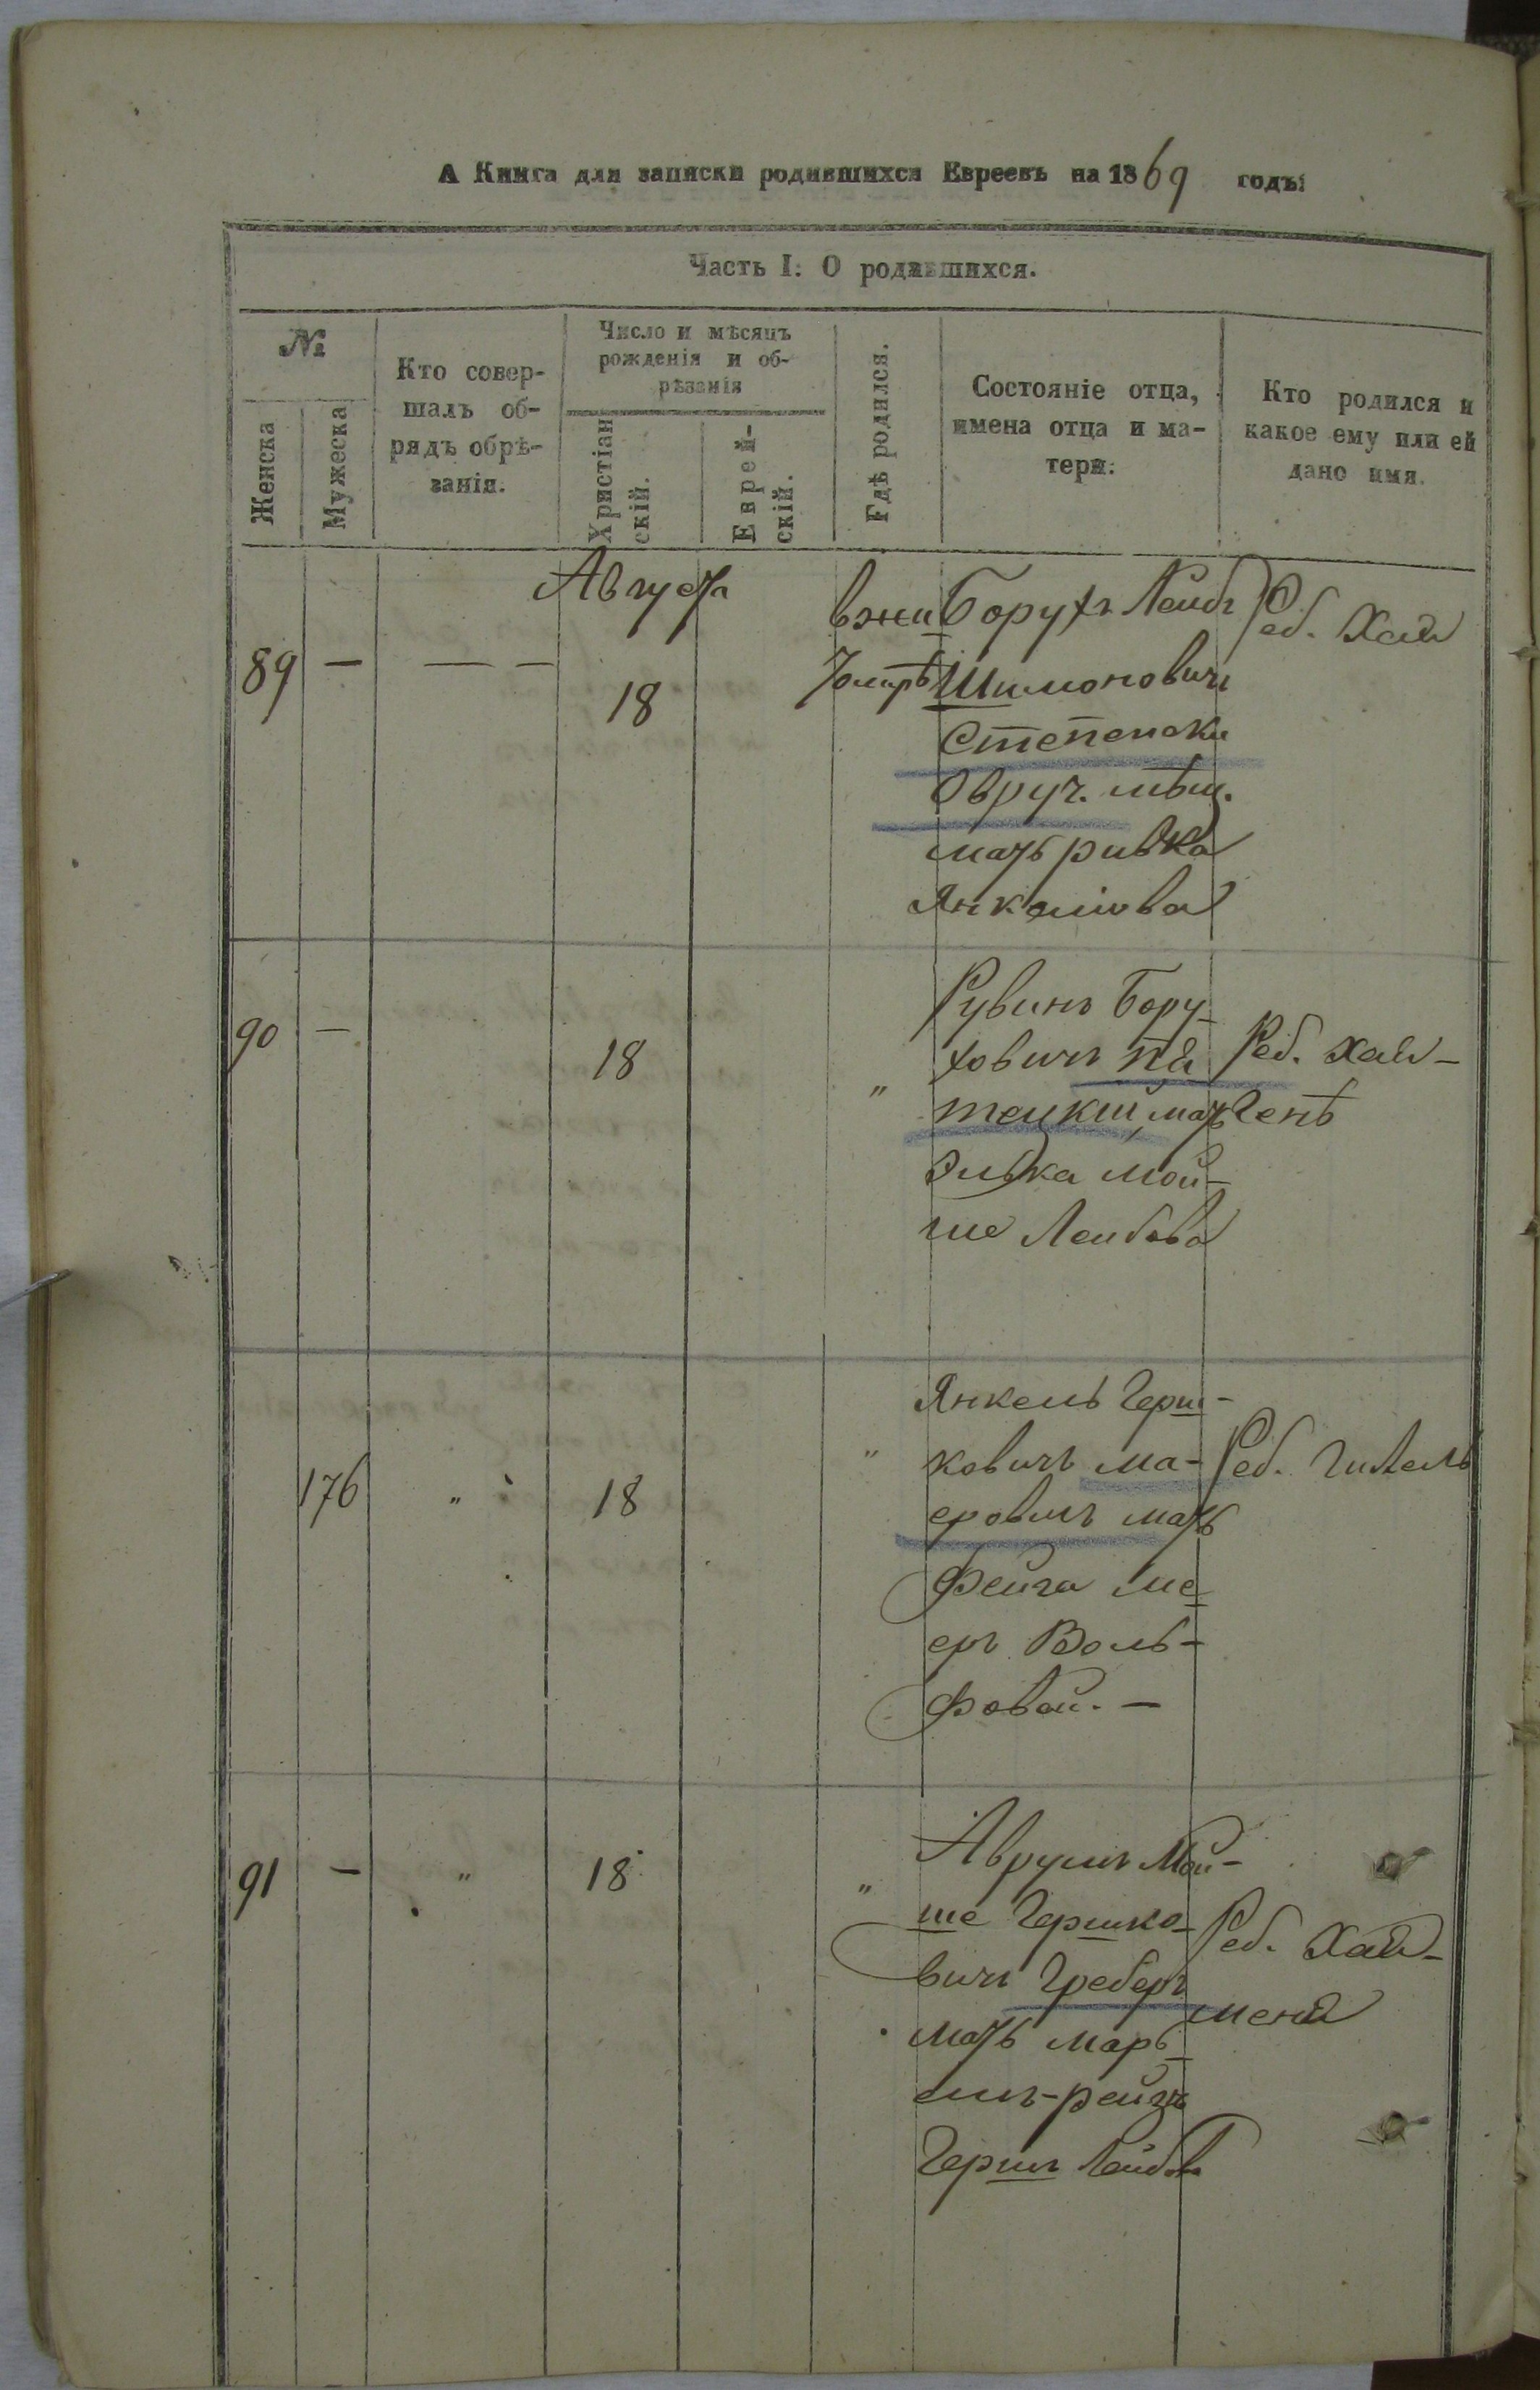 А Книга для записки родившихся Евреевъ на 1869 годъ:
Часть I: О родившихся.
№
Женска
Мужеска
Кто совер-
шалъ об-
рядъ обрѣ-
занія.
Число и мѣсяцъ
рожденія и об-
рѣзанія
Христіан
скій.
Еврей-
скій.
Гдѣ родился.
Состояніе отца,
имена отца и ма-
тери.
Кто родился и
какое ему или ей
дано имя.
Август
89 — — — 18
в Жи
томирѣ
Борухъ Лейбъ
Шимоновичъ
Степански
Овруч. мѣщ.
мать Ривка
Янкелиова
Реб. Хая
90 — 18 "
Рувинъ Бору-
ховичъ
тецкій, мать
Элька Мой-
ше Лейбова
Реб. Хая-
Генѣ
176 " 18 "
Янкель Герш-
ковичъ Ма-
еровичъ мать
Фейга Ме-
еръ Воль-
фовой. —
Реб. Гитель
91 — " 18 "
Аврумъ Мой-
ше Гершко-
вичъ Греберъ
мать Марь-
емъ-Рейзъ
Гершъ Лейбова
Реб. Хая-